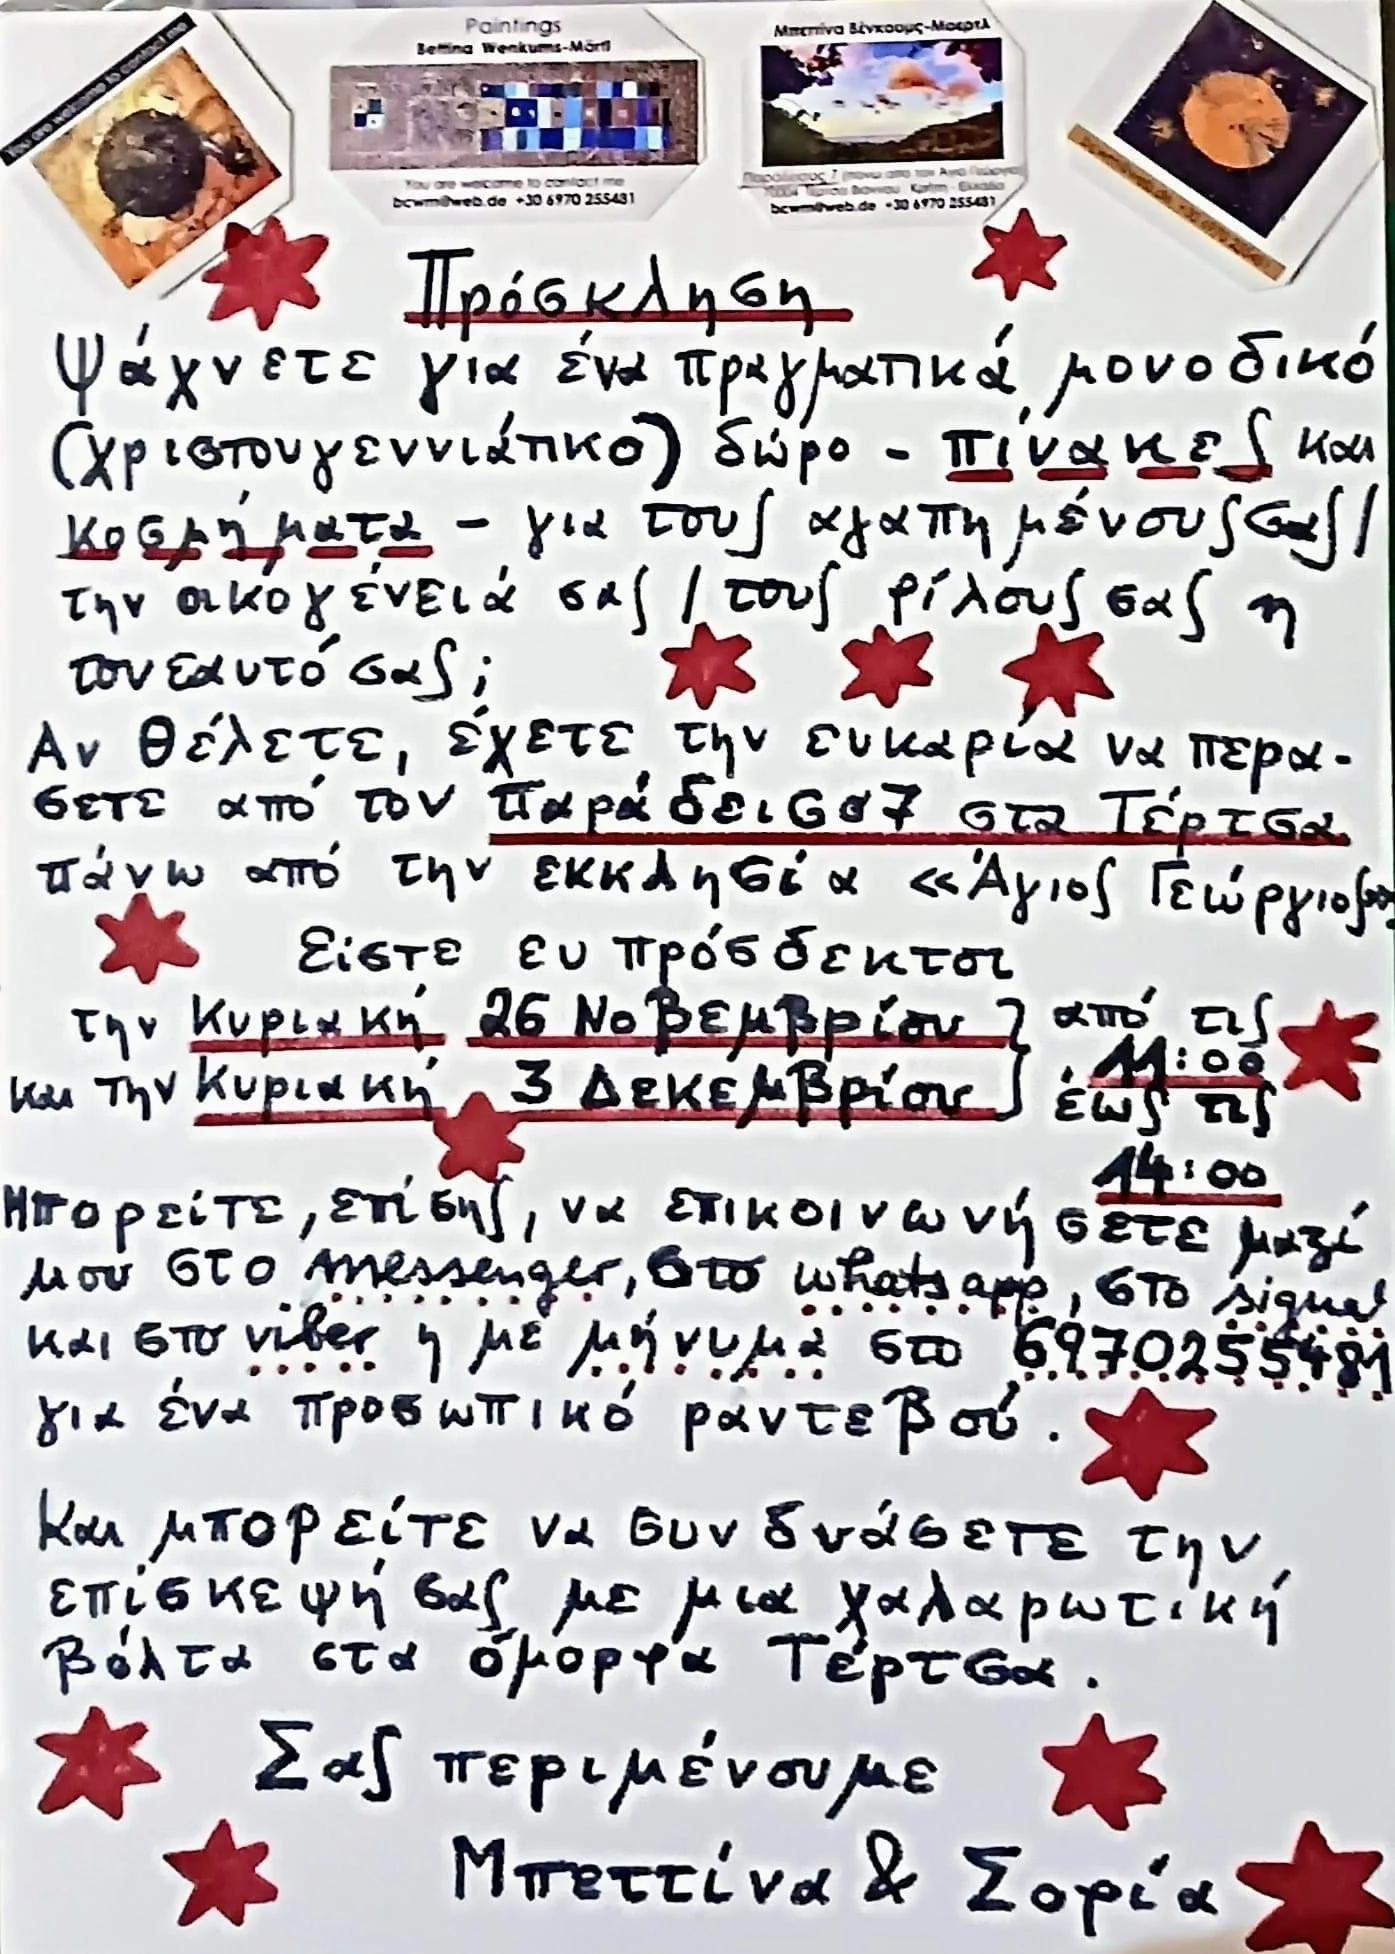 You are welcome to contact me
Paintings
Bettina Wenkums-Märtl
You are welcome to contact me
bcwm@web.de +30 6970 255481
Μπεττίνα Βένκουμς-Μαερτλ
Παράδεισος 7 (πάνω από τον Άγιο Γεώργιο)
70004 Τέρτσα Βιάννου Κρήτη - Ελλάδα
bcwm@web.de +30 6970 255481
Πρόσκληση
Ψάχνετε για ένα πραγματικά μονοδικό
(χριστουγεννιάτικο) δώρο - πίνακες και
κοσμήματα - για τους αγαπημένους σας/
την οικογένειά σας / τους φίλους σας η
τον εαυτό σας;
Αν θέλετε, έχετε την ευκαρία να περα-
σετε από τον Παράδεισο 7 στα Τέρτσα
πάνω από την εκκλησία «Άγιος Γεώργιος»
Είστε ευπρόσδεκτοι
την Κυριακή 26 Νοβεμβρίου } από τις
11:00
και την Κυριακή 3 Δεκέμβρίου } έως τις
14:00
Μπορείτε, επίσης, να επικοινωνήσετε μαζί
μου στο messenger, στο whatsapp, στο signal
και στο viber η με μήνυμα στο 6970255481
για ένα προσωπικό ραντεβού.
Και μπορείτε να συνδυάσετε την
επίσκεψή σας με μια χαλαρωτική
βόλτα στα όμορφα Τέρτσα.
Σας περιμένουμε
Μπεττίνα & Σοφία